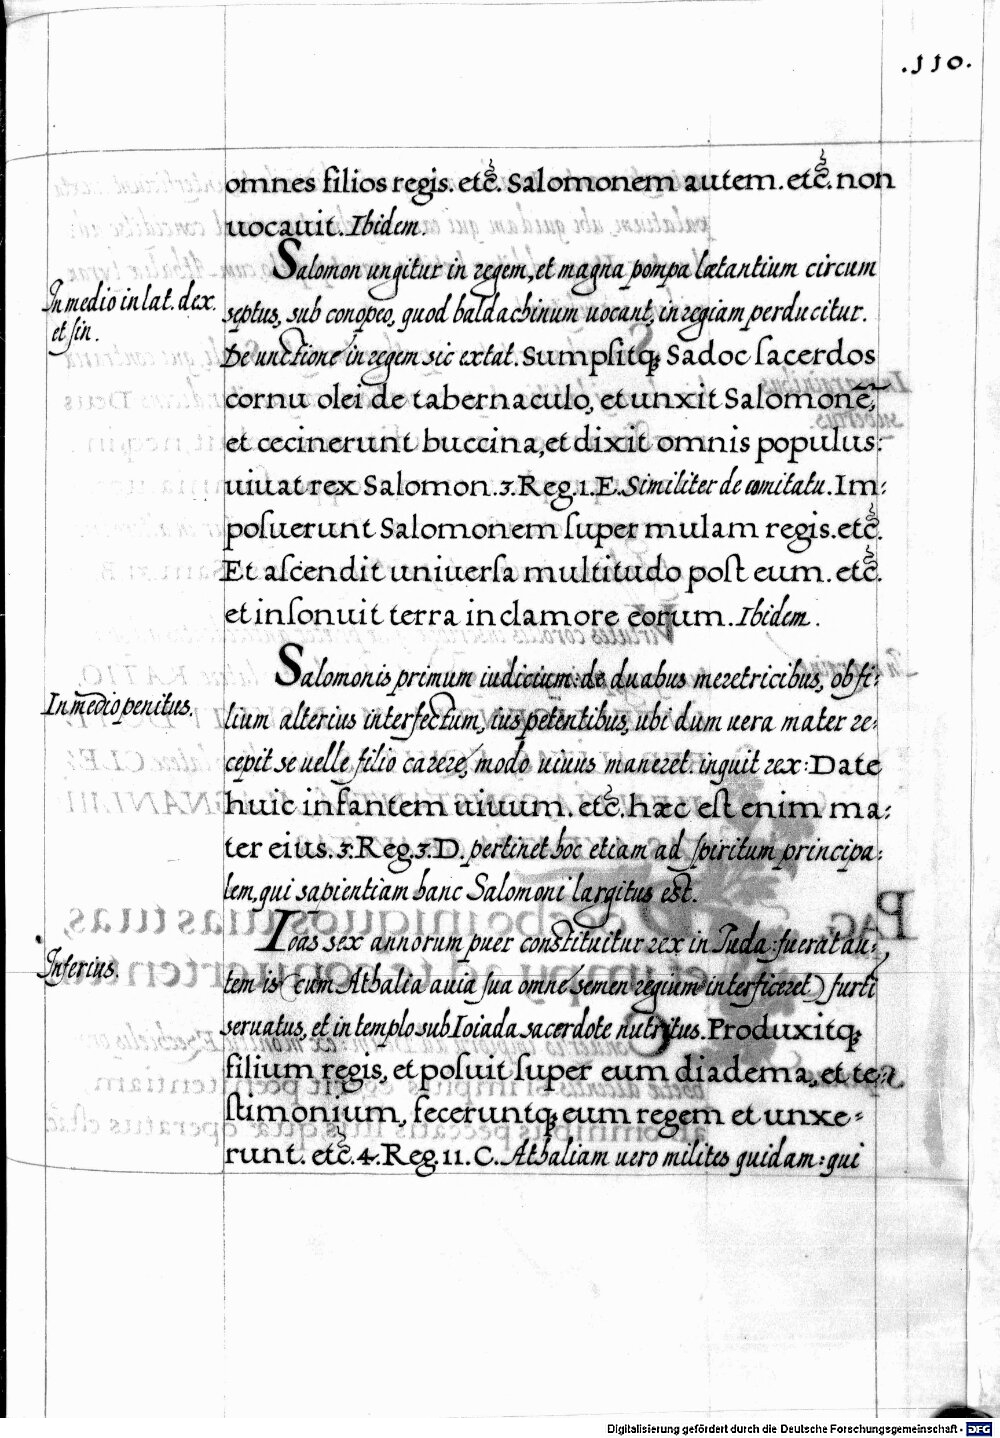 .110.
omnes filios regis. etc̃. Salomonem autem. etc̃. non
uocauit. Ibidem.
Salomon ungitur in regem, et magna pompa lætantium circum
In medio in lat. dex.
et sin.
septus, sub conopeo, quod baldachinum uocant, in regiam perducitur.
De unctione in regem sic extat. Sumpsitq; Sadoc sacerdos
cornu olei de tabernaculo, et unxit Salomonẽ,
et cecinerunt buccina, et dixit omnis populus:
uiuat rex Salomon. 3. Reg. 1. E. Similiter de comitatu. Im:
posuerunt Salomonem super mulam regis. etc̃.
Et ascendit uniuersa multitudo post eum. etc̃.
et insonuit terra in clamore eorum. Ibidem.
Salomonis primum iudicium: de duabus meretricibus, ob fi:
In medio penitus.
lium alterius interfectum, ius petentibus, ubi dum uera mater re:
cepit se uelle filio carere, modo uiuus maneret. inquit rex: Date
huic infantem uiuum. etc̃. hæc est enim ma:
ter eius. 3. Reg. 3. D. pertinet hoc etiam ad spiritum principa:
lem, qui sapientiam hanc Salomoni largitus est.
Ioas sex annorum puer constituitur rex in Iuda: fuerat au:
Inferius.
tem is (cum Athalia auia sua omne semen regium interficeret) furti
seruatus, et in templo sub Ioiada sacerdote nutritus. Produxitq;
filium regis, et posuit super eum diadema, et te:
stimonium, feceruntq; eum regem et unxe:
runt. etc̃. 4. Reg. 11. C. Athaliam uero milites quidam: qui
Digitalisierung gefördert durch die Deutsche Forschungsgemeinschaft - DFG